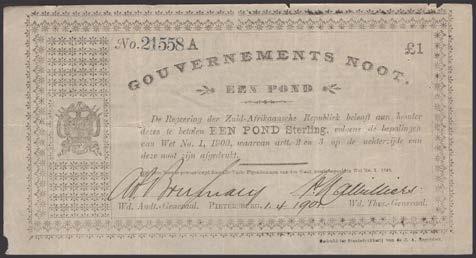 No. 21558 A
£1
GOUVERNEMENTS NOOT.
EEN POND
De Regeering der Zuid-Afrikaansche Republiek belooft aan houder
dezes te betalen EEN POND Sterling, volgens de bepalingen
van Wet No. 1, 1900, waarvan artt. 2 en 3 op de achterzijde van
deze noot zijn afgedrukt.
Wd. Audt.-Generaal. PIETERSBURG, 1.4.1901 Wd. Thes.-Generaal.